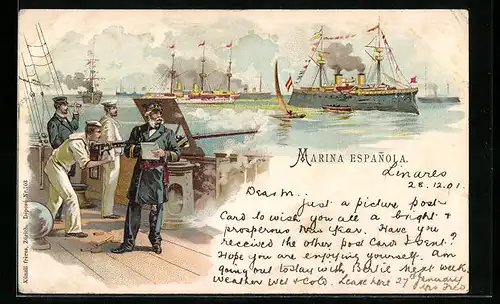 MARINA ESPAÑOLA.
Linares
28.12.01.
Dear M..
Just a picture post
Card to wish you all a bright &
prosperous New Year. Have you
received the other post Card I sent?
Hope you are enjoying yourself. Am
going out today with Bertie next week.
Weather Wet & Cold. Leave here 27th January
Künzli frères, Zürich. Déposé Nr.